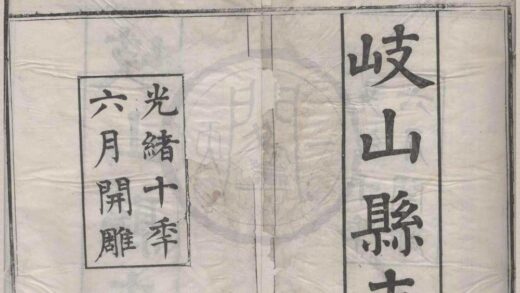 岐山縣
光緒十年
六月開雕